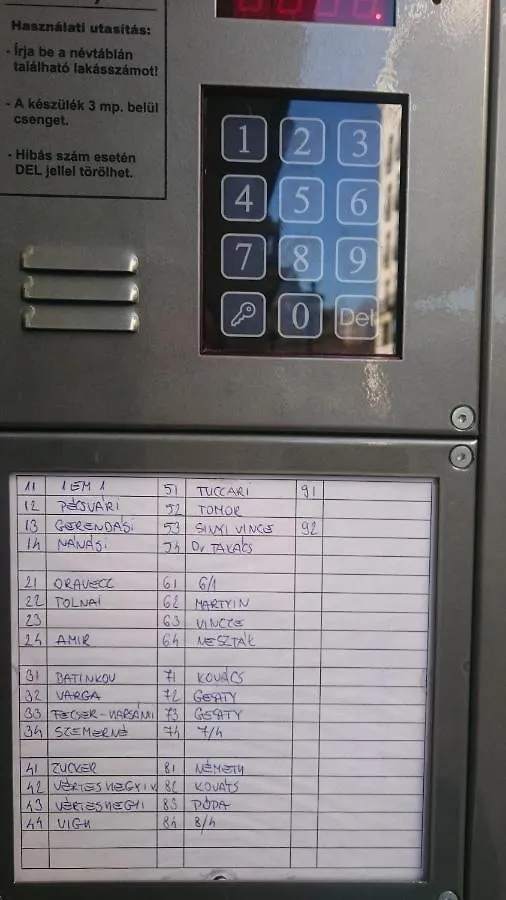 Használati utasítás:
- Írja be a névtáblán
található lakásszámot!
- A készülék 3 mp. belül
csenget.
- Hibás szám esetén
DEL jellel törölhet.
1 2 3
4 5 6
7 8 9
0 Del
11 1EM 1 51 TUCCARI 91
12 PÉCSVÁRI 52 TOMOR
13 GERENDASI 53 SINYI VINCE 92
14 NANÁSI 54 Dr TAKÁCS
21 ORAVECZ 61 6/1
22 TOLNAI 62 MARTYIN
23 63 VINCZE
24 AMIR 64 NESZTÁK
31 BATINKOV 71 KOVÁCS
32 VARGA 72 GERTY
33 FECSER-HARSÁNYI 73 GERTY
34 SZEMERNÉ 74 7/4
41 ZUCKER 81 NÉMETH
42 VÉRTESHEGYI V 82 KOVÁTS
43 VÉRTESHEGYI 83 DÓDA
44 VIGH 84 8/4